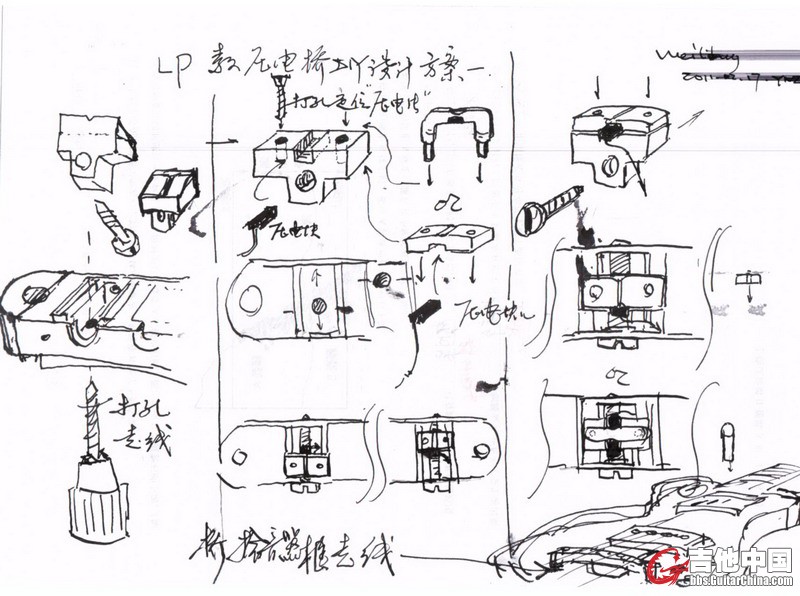 LP 款压电桥DIY设计方案一
打孔走位"压电片"
压电块
or
压电块
打孔
走线
or
桥 拾音器框走线
吉他中国
bbs.GuitarChina.com